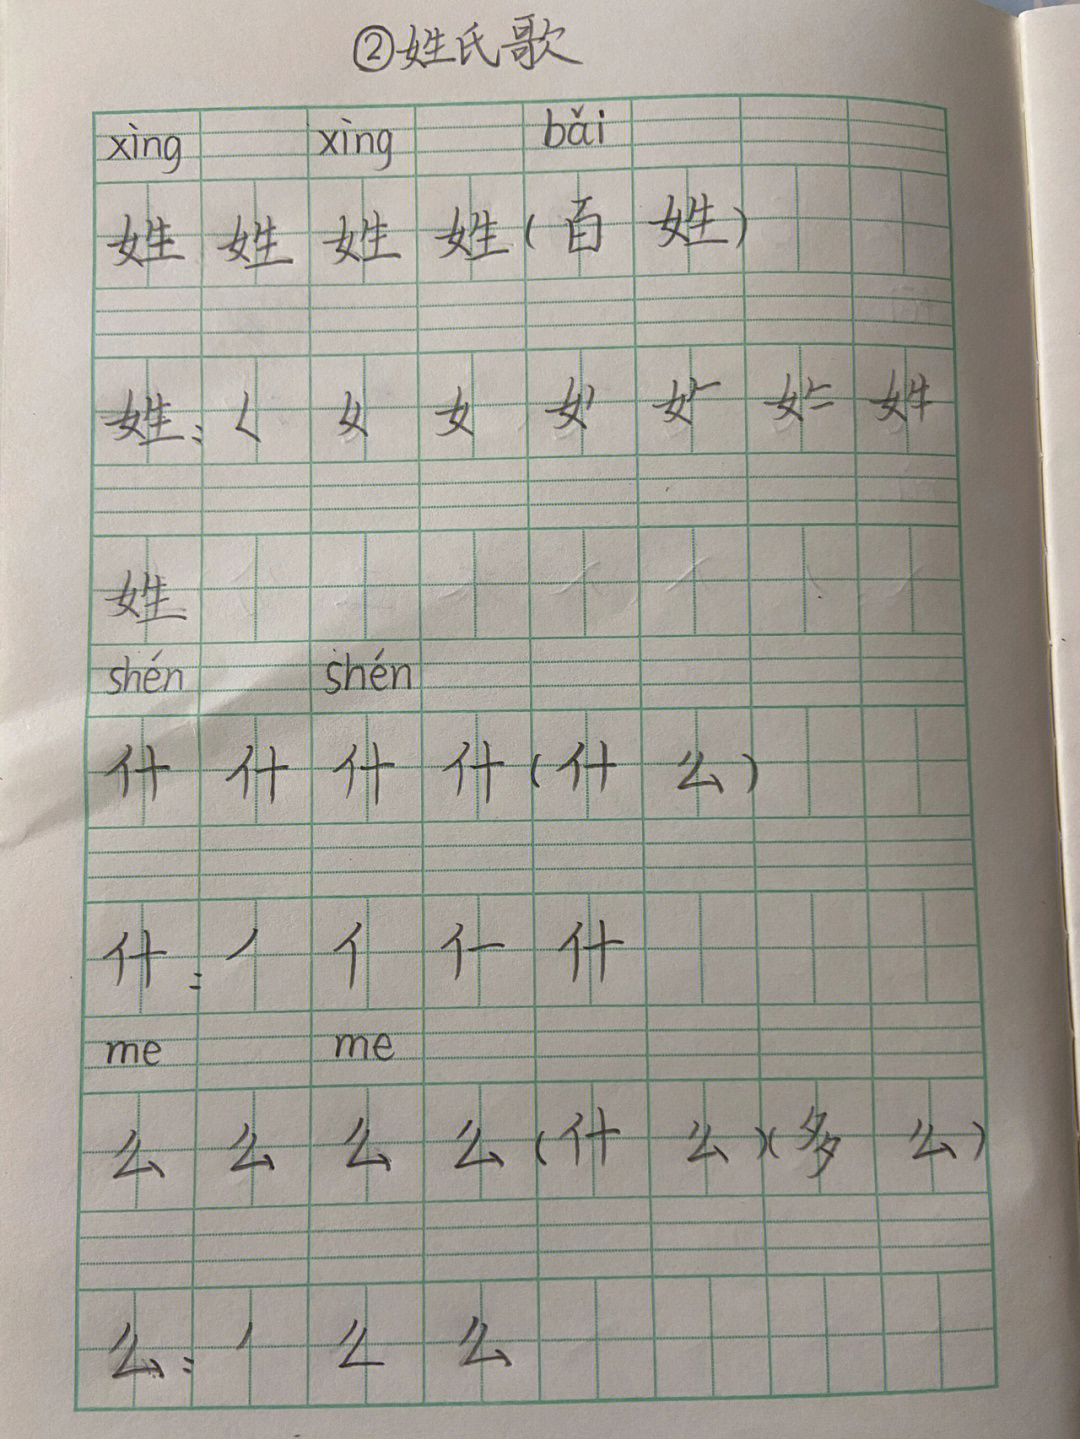 ②姓氏歌
xìng xìng bǎi
姓 姓 姓 姓(百 姓)
姓:𡿨 女 女 女丨 女⺊ 女 姓
姓
shén shén
什 什 什 什(什 么)
什:丿 亻 仁 什
me me
么 么 么 么(什 么)(多 么)
么:丿 厶 么